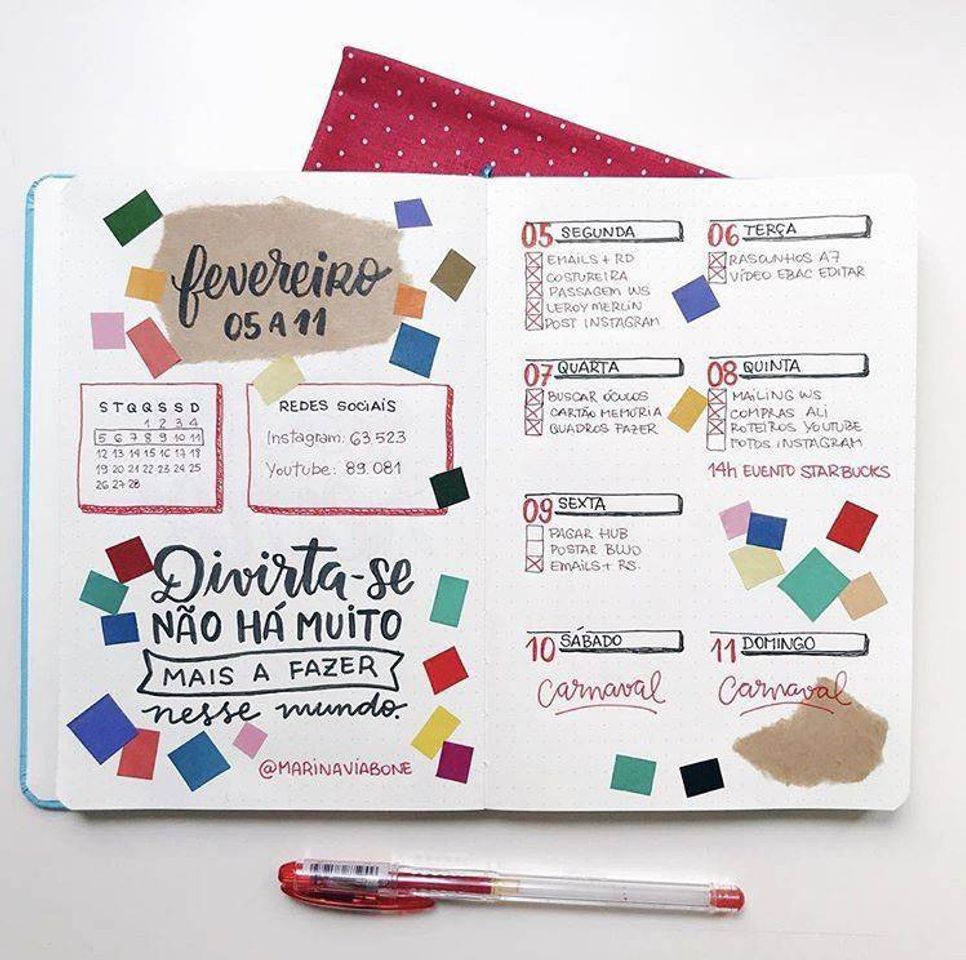 fevereiro
05 A 11
S T Q Q S S D
1 2 3 4
5 6 7 8 9 10 11
12 13 14 15 16 17 18
19 20 21 22 23 24 25
26 27 28
REDES SOCIAIS
Instagram: 63 523
Youtube: 89.081
Divirta-se
NÃO HÁ MUITO
MAIS A FAZER
nesse mundo.
@MARINAVIABONE
05 SEGUNDA
EMAILS + RD
COSTUREIRA
PASSAGEM WS
LEROY MERLIN
POST INSTAGRAM
06 TERÇA
RASCUNHOS A7
VÍDEO EBAC EDITAR
07 QUARTA
BUSCAR ÓCULOS
CARTÃO MEMÓRIA
QUADROS FAZER
08 QUINTA
MAILING WS
COMPRAS ALI
ROTEIROS YOUTUBE
FOTOS INSTAGRAM
14h EVENTO STARBUCKS
09 SEXTA
PAGAR HUB
POSTAR BUJO
EMAILS + RS.
10 SÁBADO
Carnaval
11 DOMINGO
Carnaval